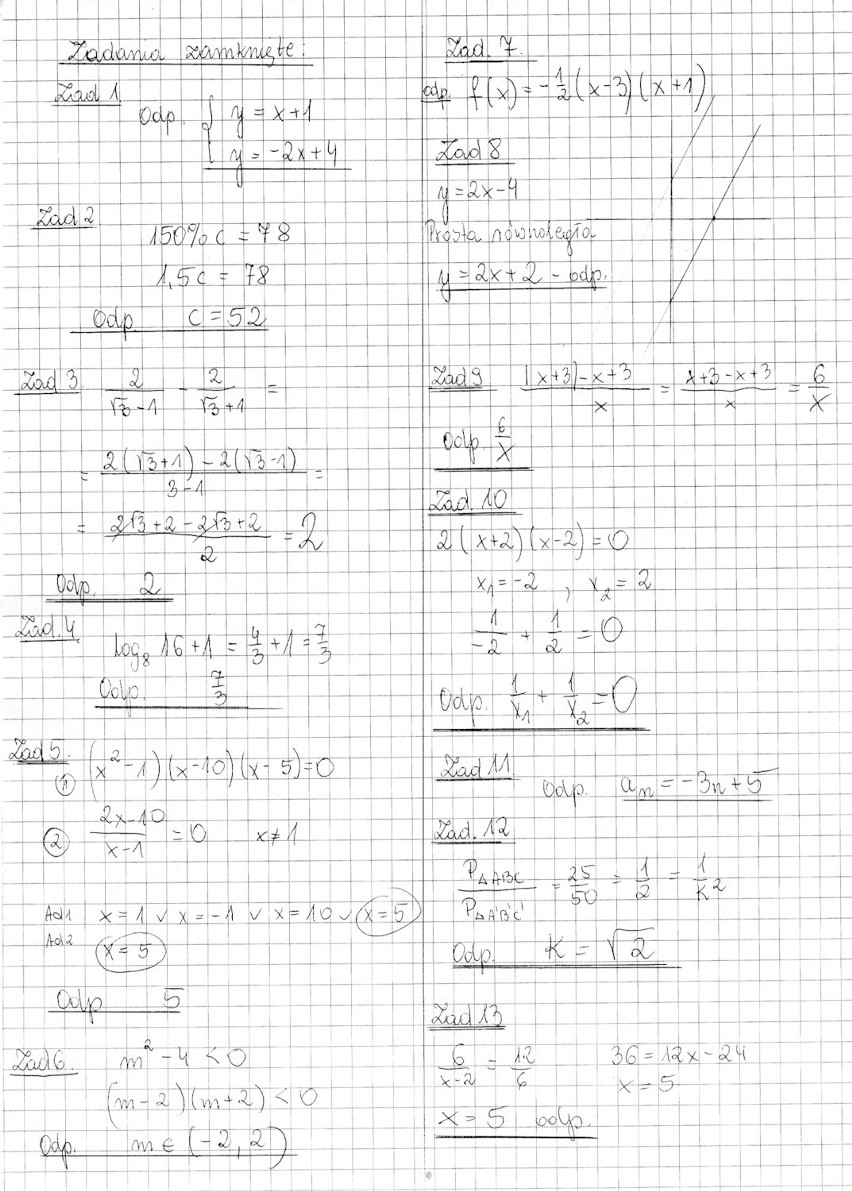 Zadania zamknięte:
Zad 1
Odp. { y = x+1
y = -2x+4
Zad 2
150% c = 78
1,5c = 78
Odp. c = 52
Zad 3 2/(√3-1) - 2/(√3+1) =
= (2(√3+1) - 2(√3-1))/(3-1) =
= (2√3+2-2√3+2)/2 = 2
Odp. 2
Zad. 4. log₈ 16 + 1 = 4/3 + 1 = 7/3
Odp. 7/3
Zad 5. ① (x²-1)(x-10)(x-5)=0
② (2x-10)/(x-1) = 0 x≠1
Ad1 x=1 ∨ x=-1 ∨ x=10 ∨ x=5
Ad2 x=5
Odp 5
Zad 6. m²-4 < 0
(m-2)(m+2) < 0
Odp. m ∈ (-2, 2)
Zad. 7.
odp. f(x) = -1/2 (x-3)(x+1)
Zad 8
y = 2x-4
Prosta równoległa
y = 2x+2 - odp.
Zad 9 (|x+3|-x+3)/x = (x+3-x+3)/x = 6/x
Odp. 6/x
Zad. 10
2(x+2)(x-2)=0
x₁ = -2 , x₂ = 2
1/-2 + 1/2 = 0
Odp. 1/x₁ + 1/x₂ = 0
Zad 11
Odp. aₙ = -3n+5
Zad. 12
P△ABC/P△A'B'C' = 25/50 = 1/2 = 1/K²
Odp. K = √2
Zad 13
6/(x-2) = 12/6 36 = 12x-24
x = 5
x = 5 odp.